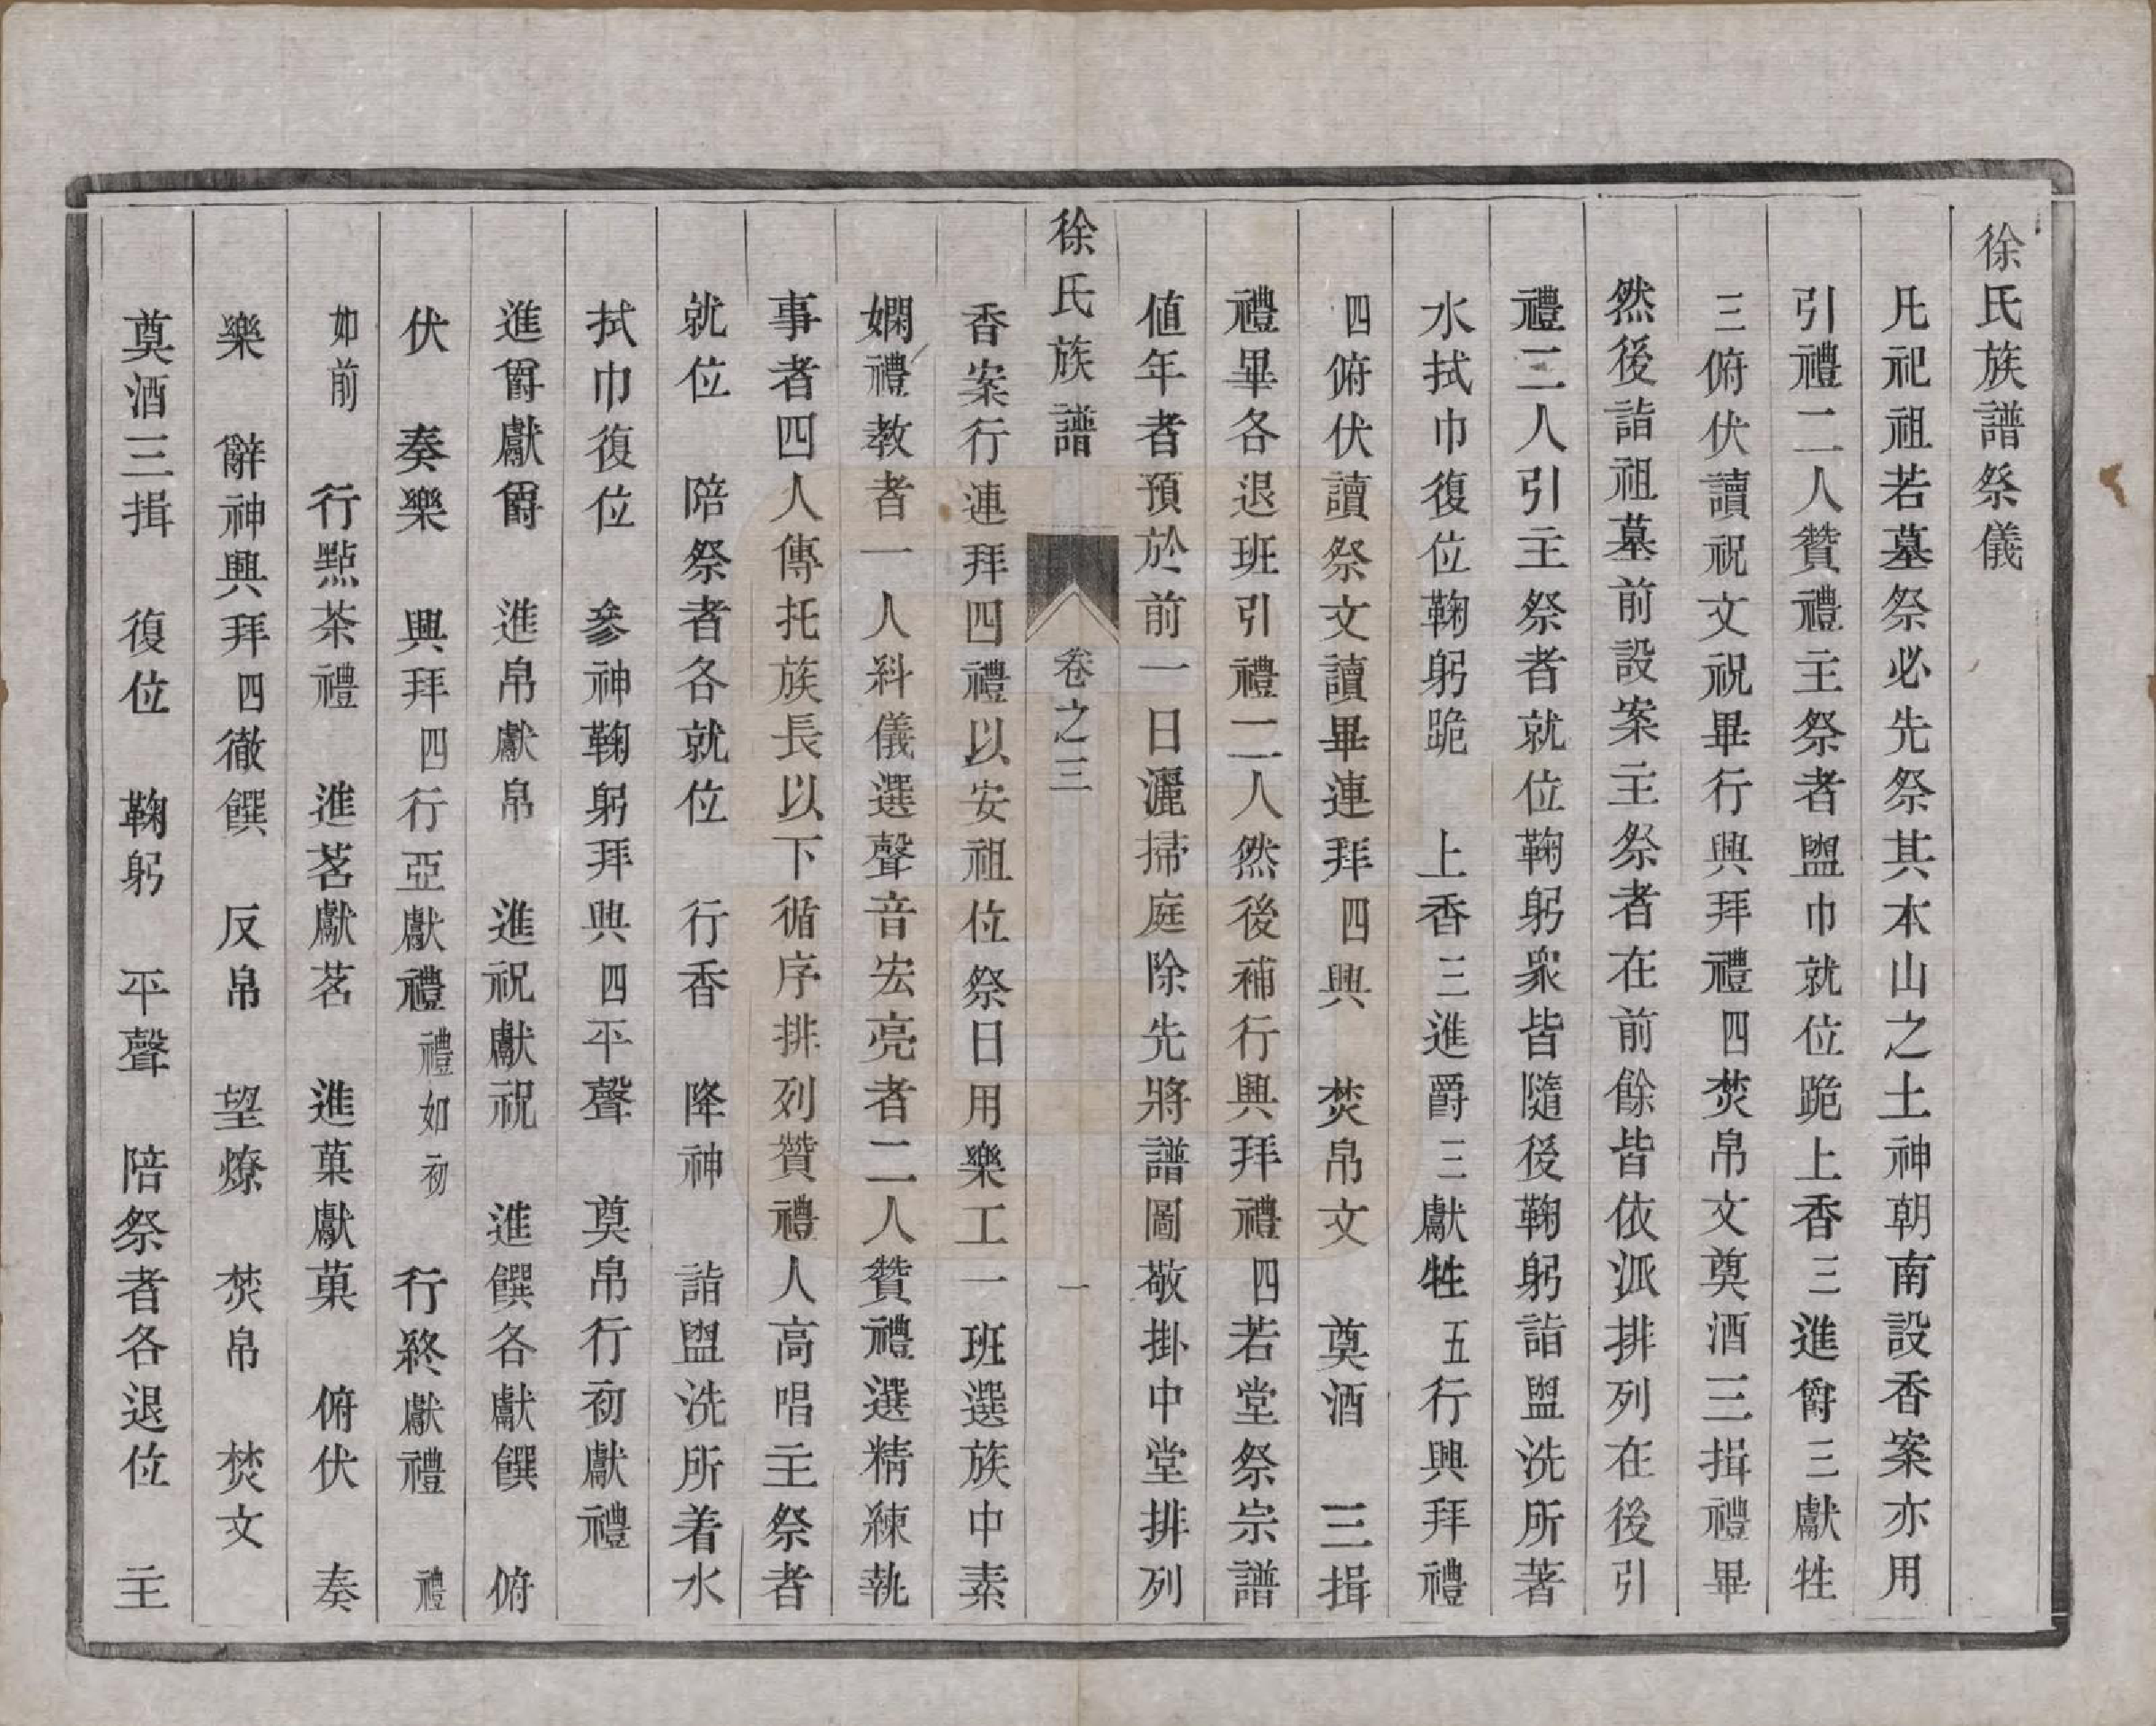 徐氏族譜祭儀
凡祀祖若墓祭必先祭其本山之土神朝南設香案亦用
引禮二人贊禮主祭者盥巾就位跪上香三進爵三獻牲
三俯伏讀祝文祝畢行興拜禮四焚帛文奠酒三揖禮畢
然後詣祖墓前設案主祭者在前餘皆依派排列在後引
禮三人引主祭者就位鞠躬眾皆隨後鞠躬詣盥洗所著
水拭巾復位鞠躬跪 上香三進爵三獻牲五行興拜禮
四俯伏讀祭文讀畢連拜四興 焚帛文 奠酒 三揖
禮畢各退班引禮二人然後補行興拜禮四若堂祭宗譜
值年者預於前一日灑掃庭除先將譜圖敬掛中堂排列
徐氏族譜 卷之三 一
香案行連拜四禮以安祖位祭日用樂工一班選族中素
嫻禮教者一人糾儀選聲音宏亮者二人贊禮選精練執
事者四人傳托族長以下循序排列贊禮人高唱主祭者
就位 陪祭者各就位 行香 降神 詣盥洗所着水
拭巾復位 參神鞠躬拜興四平聲 奠帛行初獻禮
進爵獻爵 進帛獻帛 進祝獻祝 進饌各獻饌 俯
伏 奏樂 興拜四行亞獻禮禮如初 行終獻禮 禮
如前 行㸃茶禮 進茗獻茗 進菓獻菓 俯伏 奏
樂 辭神興拜四徹饌 反帛 望燎 焚帛 焚文
奠酒三揖 復位 鞠躬 平聲 陪祭者各退位 主